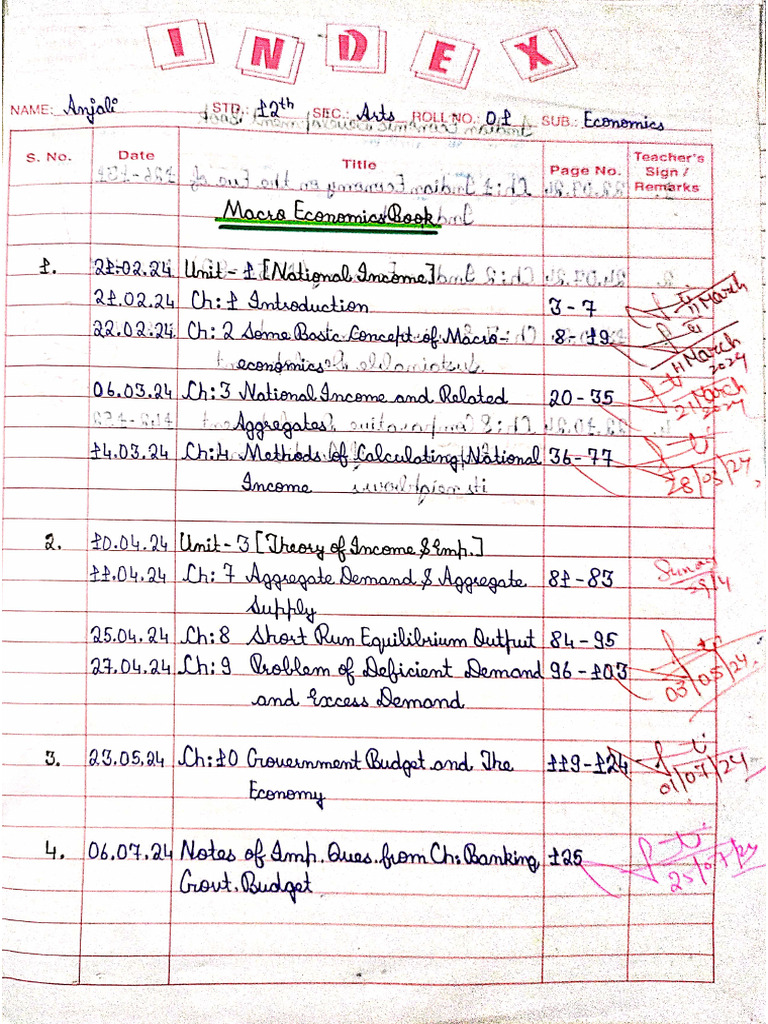 INDEX
NAME: Anjali STD.: 12th SEC.: Arts ROLL NO. 01 SUB.: Economics
S. No. Date Title Page No. Teacher's Sign / Remarks
Macro Economics Book
1. 21.02.24 Unit-1 [National Income]
21.02.24 Ch:1 Introduction 3-7 11 March
22.02.24. Ch: 2 Some Basic Concept of Macro- 8-19
economics 11 March 2024
06.03.24 Ch:3 National Income and Related 20-35 21 March 2024
Aggregates
14.03.24 Ch:4 Methods of Calculating National 36-77
Income 28/03/24
2. 10.04.24 Unit-3 [Theory of Income & Emp.]
11.04.24 Ch: 7 Aggregate Demand & Aggregate 81-83
Supply
25.04.24 Ch:8 Short Run Equilibrium Output 84-95
27.04.24 Ch:9 Problem of Deficient Demand 96-103 03/05/24
and Excess Demand
3. 23.05.24 Ch:10 Government Budget and The 119-124 01/07/24
Economy
4. 06.07.24 Notes of Imp. Ques. from Ch: Banking 125 25/07/24
Govt. Budget